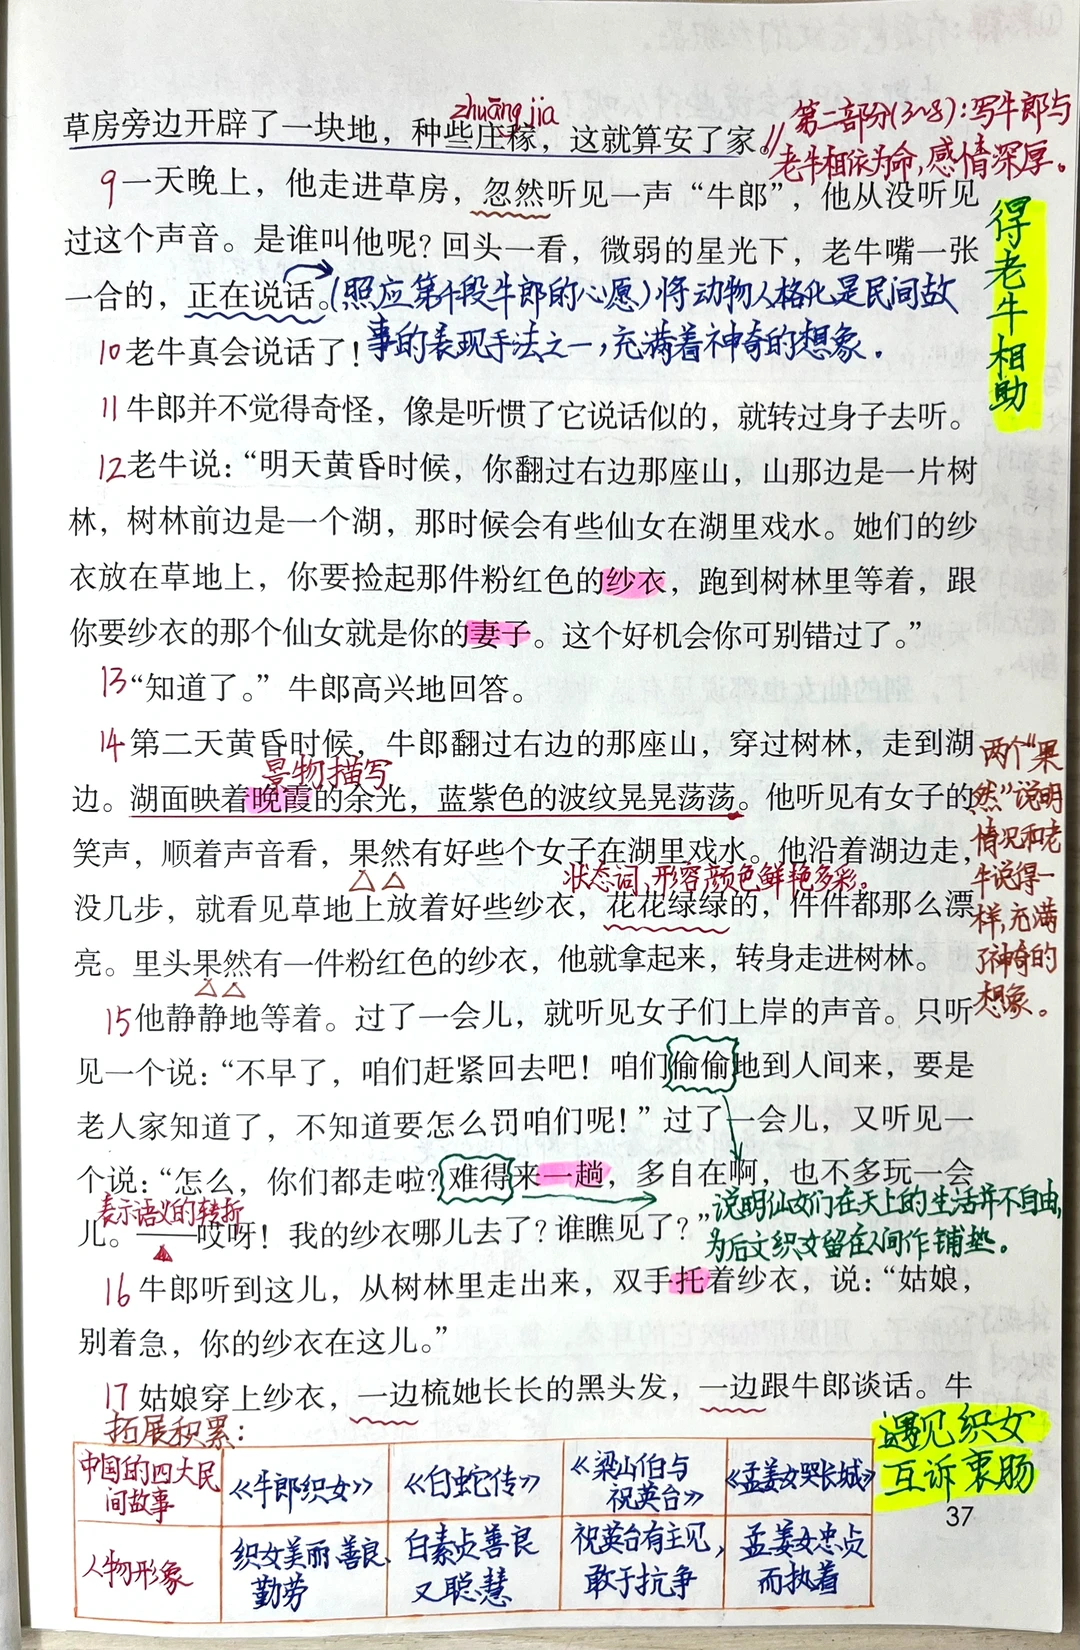 zhuāng jia
草房旁边开辟了一块地，种些庄稼，这就算安了家。//
第二部分(3~8)：写牛郎与
老牛相依为命，感情深厚。
9 一天晚上，他走进草房，忽然听见一声“牛郎”，他从没听见
过这个声音。是谁叫他呢？回头一看，微弱的星光下，老牛嘴一张
一合的，正在说话。(照应第4段牛郎的心愿)将动物人格化是民间故
事的表现手法之一，充满着神奇的想象。
得老牛相助
10 老牛真会说话了！
11 牛郎并不觉得奇怪，像是听惯了它说话似的，就转过身子去听。
12 老牛说：“明天黄昏时候，你翻过右边那座山，山那边是一片树
林，树林前边是一个湖，那时候会有些仙女在湖里戏水。她们的纱
衣放在草地上，你要捡起那件粉红色的纱衣，跑到树林里等着，跟
你要纱衣的那个仙女就是你的妻子。这个好机会你可别错过了。”
13 “知道了。”牛郎高兴地回答。
14 第二天黄昏时候，牛郎翻过右边的那座山，穿过树林，走到湖
景物描写
边。湖面映着晚霞的余光，蓝紫色的波纹晃晃荡荡。他听见有女子的
笑声，顺着声音看，果然有好些个女子在湖里戏水。他沿着湖边走，
状态词，形容颜色鲜艳多彩。
没几步，就看见草地上放着好些纱衣，花花绿绿的，件件都那么漂
亮。里头果然有一件粉红色的纱衣，他就拿起来，转身走进树林。
两个“果
然”说明
情况和老
牛说得一
样，充满
了神奇的
想象。
15 他静静地等着。过了一会儿，就听见女子们上岸的声音。只听
见一个说：“不早了，咱们赶紧回去吧！咱们偷偷地到人间来，要是
老人家知道了，不知道要怎么罚咱们呢！”过了一会儿，又听见一
个说：“怎么，你们都走啦？难得来一趟，多自在啊，也不多玩一会
表示语义的转折
儿。——哎呀！我的纱衣哪儿去了？谁瞧见了？”
说明仙女们在天上的生活并不自由，
为后文织女留在人间作铺垫。
16 牛郎听到这儿，从树林里走出来，双手托着纱衣，说：“姑娘，
别着急，你的纱衣在这儿。”
17 姑娘穿上纱衣，一边梳她长长的黑头发，一边跟牛郎谈话。牛
遇见织女
互诉衷肠
拓展积累：
中国的四大民间故事 《牛郎织女》 《白蛇传》 《梁山伯与祝英台》 《孟姜女哭长城》
人物形象 织女美丽、善良、勤劳 白素贞善良又聪慧 祝英台有主见，敢于抗争 孟姜女忠贞而执着
37